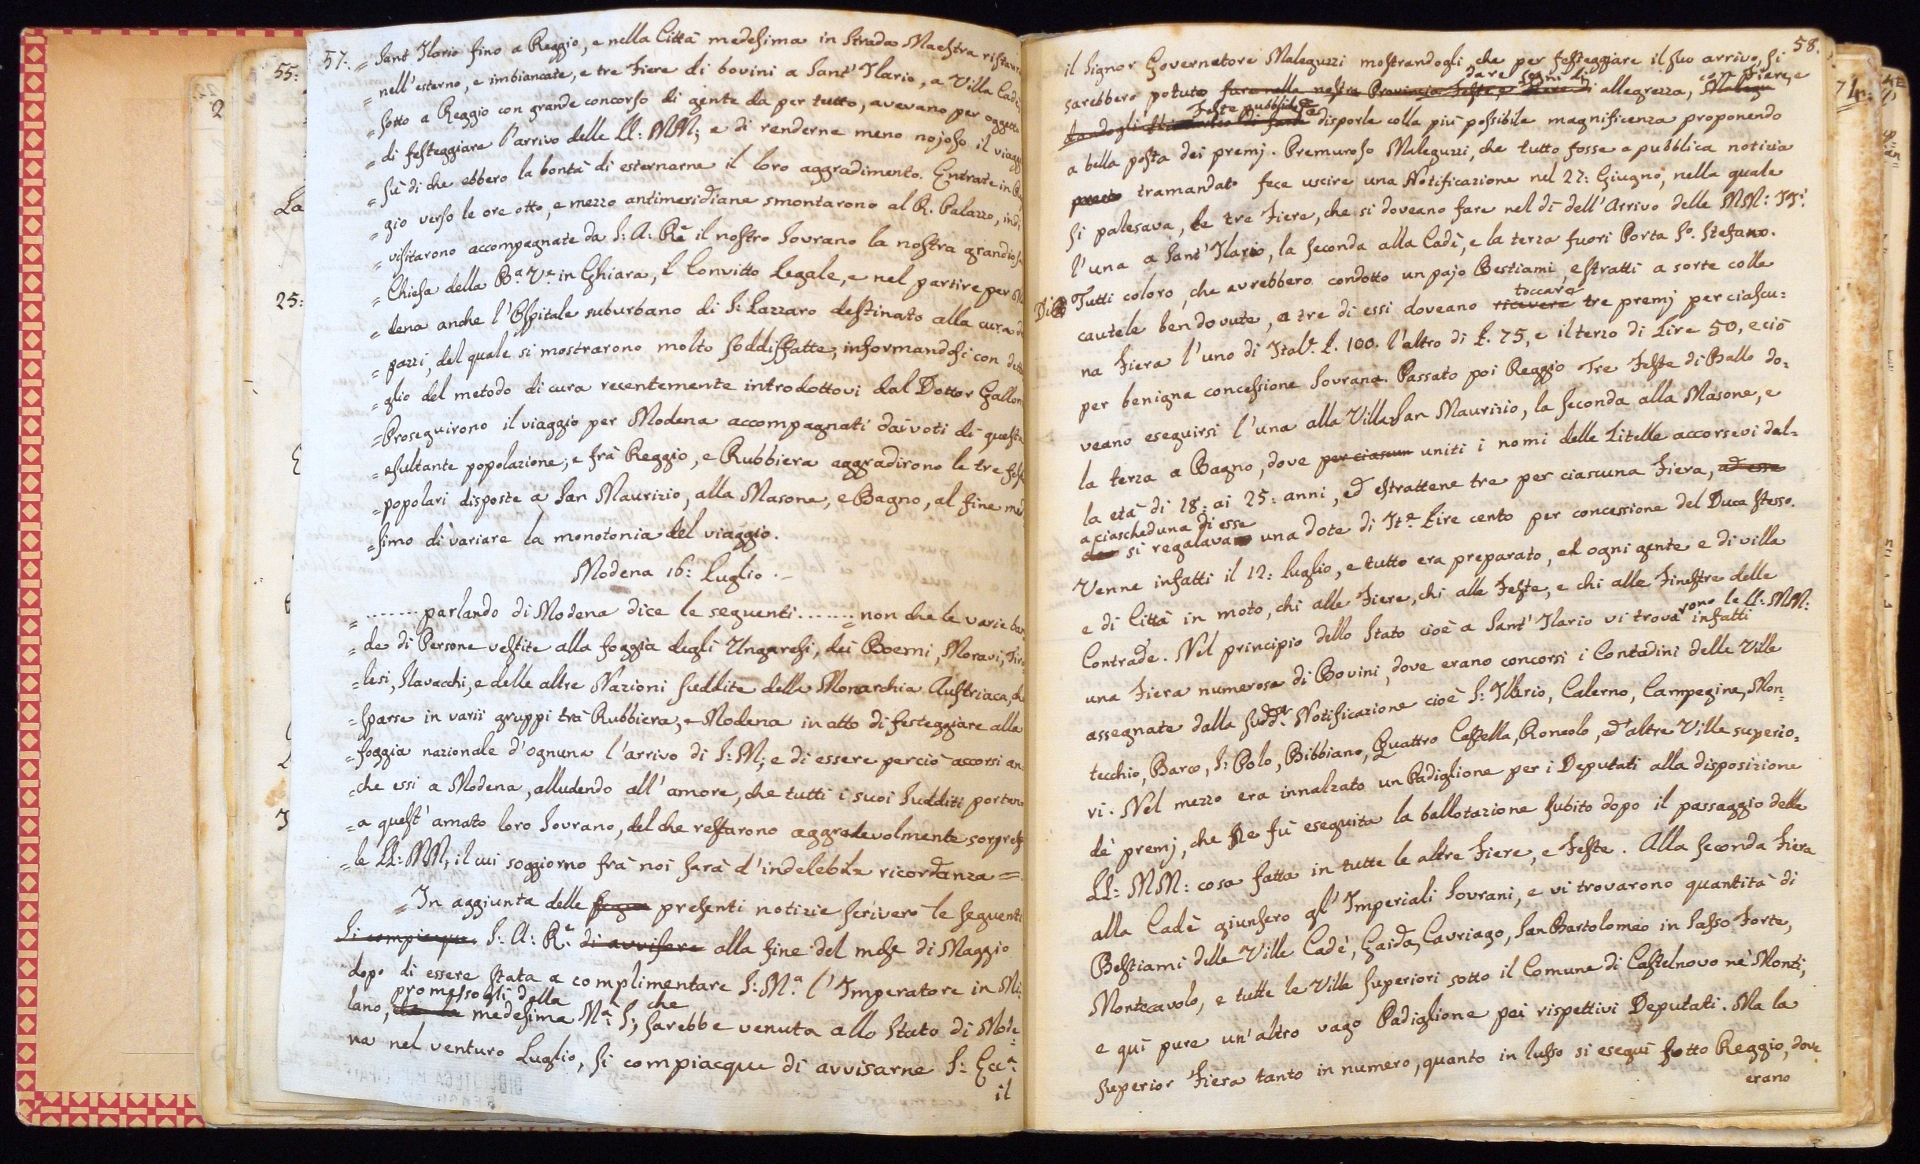 57:
= Sant' Ilario fino a Reggio, e nella Città medesima in Strada Maestra ristaur
= nell'esterno, e imbiancate, e tre Fiere di bovini a Sant' Ilario, a Villa Cadè
= sotto a Reggio con grande concorso di gente da per tutto, avevano per oggetto
= di festeggiare l'arrivo delle LL: MM; e di renderne meno nojoso il viagg
= si di che ebbero la bontà di esternarne il loro aggradimento. Entrate in Reg
= gio verso le ore otto, e mezzo antimeridiane smontarono al R. Palazzo, indi
= visitarono accompagnate da S: A: Rè il nostro Sovrano la nostra grandiosa
= Chiesa della Bª Vª in Ghiara, il Convitto Legale, e nel partire per Mo
= dena anche l'Ospitale suburbano di S: Lazzaro destinato alla cura de
= pazzi, del quale si mostrarono molto soddisfatte, informandosi con detta
= glio del metodo di cura recentemente introdottovi dal Dottor Galloni
= Proseguirono il viaggio per Modena accompagnati dai voti di questa
= esultante popolazione; e frà Reggio, e Rubbiera aggradirono le tre feste
= popolari disposte a San Maurizio, alla Masone, e Bagno, al fine med
= simo di variare la monotonia del viaggio.
Modena 16: Luglio.
= ........ parlando di Modena dice le seguenti ........ = non che le varie ban
= de di Persone vestite alla foggia degli Ungaresi, dei Boemi, Moravi, Tiro
= lesi, Slavacchi, e delle altre Nazioni suddite della Monarchia Austriaca, che
= sparse in varii gruppi trà Rubbiera, e Modena in atto di festeggiare alla
= foggia nazionale d'ognuna l'arrivo di S: M; e di essere perciò accorsi an
= che essi a Modena, alludendo all'amore, che tutti i suoi Sudditi portano
= a quest' amato loro Sovrano, del che restarono aggradevolmente sorprese
= le LL: MM; il cui soggiorno frà noi sarà d'indelebile ricordanza =
= In aggiunta delle presenti notizie scriverò le seguenti
Si compiacque S: A: Rè di avvisare alla fine del mese di Maggio
dopo di essere stata a complimentare S: Mª l'Imperatore in Mi:
promessogli dalla che
lano, medesima Mª S; sarebbe venuta allo Stato di Mode
na nel venturo Luglio, si compiacque di avvisarne S: Eccª
il
58.
il Signor Governatore Maleguzzi mostrandogli, che per festeggiare il suo arrivo, si
dare segni di con Fiere, e
sarebbero potuto fare nella nostra Provincia Feste, e Fiere di allegrezza,
Feste pubbliche
disporle colla più possibile magnificenza proponendo
a bella posta dei premj. Premuroso Maleguzzi, che tutto fosse a pubblica notizia
tramandato fece uscire una Notificazione nel 27: Giugno, nella quale
si palesava, le tre Fiere, che si doveano fare nel dì dell'Arrivo delle MM: II:
l'una a Sant' Ilario, la seconda alla Cadè, e la terza fuori Porta Sº. Stefano.
Di Tutti coloro, che avrebbero condotto un pajo Bestiami, estratti a sorte colle
toccare
cautele ben dovute, a tre di essi doveano ricevere tre premj per ciascu:
na Fiera l'uno di Italᵉ. L. 100. l'altro di L. 75, e il terzo di Lire 50, e ciò
per benigna concessione Sovrana. Passato poi Reggio Tre Feste di Ballo do:
veano eseguirsi l'una alla Villa San Maurizio, la seconda alla Masone, e
la terza a Bagno, dove per ciascun uniti i nomi delle Zitelle accorsevi dal:
la età di 18: ai 25: anni, ed estrattene tre per ciascuna Fiera, ad esse
a ciascheduna di esse
si regalava una dote di Itᵉ Lire cento per concessione del Duca stesso.
Venne infatti il 12: Luglio, e tutto era preparato, ed ogni gente e di villa
e di Città in moto, chi alle Fiere, chi alle Feste, e chi alle Finestre delle
rono le LL: MM:
Contrade. Nel principio dello Stato cioè a Sant' Ilario vi trova infatti
una Fiera numerosa di Bovini, dove erano concorsi i Contadini delle Ville
assegnate dalla suddª. Notificazione cioè S: Ilario, Calerno, Campegine, Mon:
tecchio, Barco, S: Polo, Bibbiano, Quattro Castella, Roncolo, ed altre Ville superio:
vi. Nel mezzo era innalzato un Padiglione per i Deputati alla disposizione
de' premj, che se fù eseguita la ballotazione subito dopo il passaggio delle
LL: MM: cosa fatta in tutte le altre Fiere, e Feste. Alla seconda Fiera
alla Cadè giunsero gl'Imperiali Sovrani, e vi trovarono quantità di
Bestiami delle Ville Cadè, Gaida, Cavriago, San Bartolomeo in Sasso Forte,
Montecavolo, e tutte le Ville superiori sotto il Comune di Castelnovo ne' Monti,
e quì pure un'altro vago Padiglione pei rispettivi Deputati. Ma la
superior Fiera tanto in numero, quanto in lusso si eseguì sotto Reggio, dove
erano
55:
2
La
25:
71: